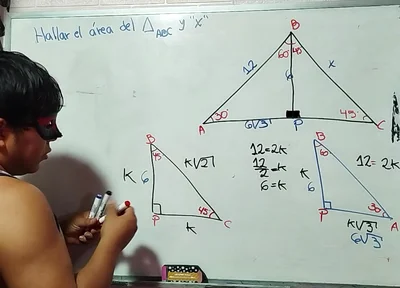 Hallar el área del △ABC y "x"
B
60° 45
12
6
x
30°
45°
A
6√3
P
C
B
45
K 6
K√2
45°
P
K
C
12=2K
12/2=K
6=K
B
60
K
6
12=2K
30°
P
A
K√3
6√3